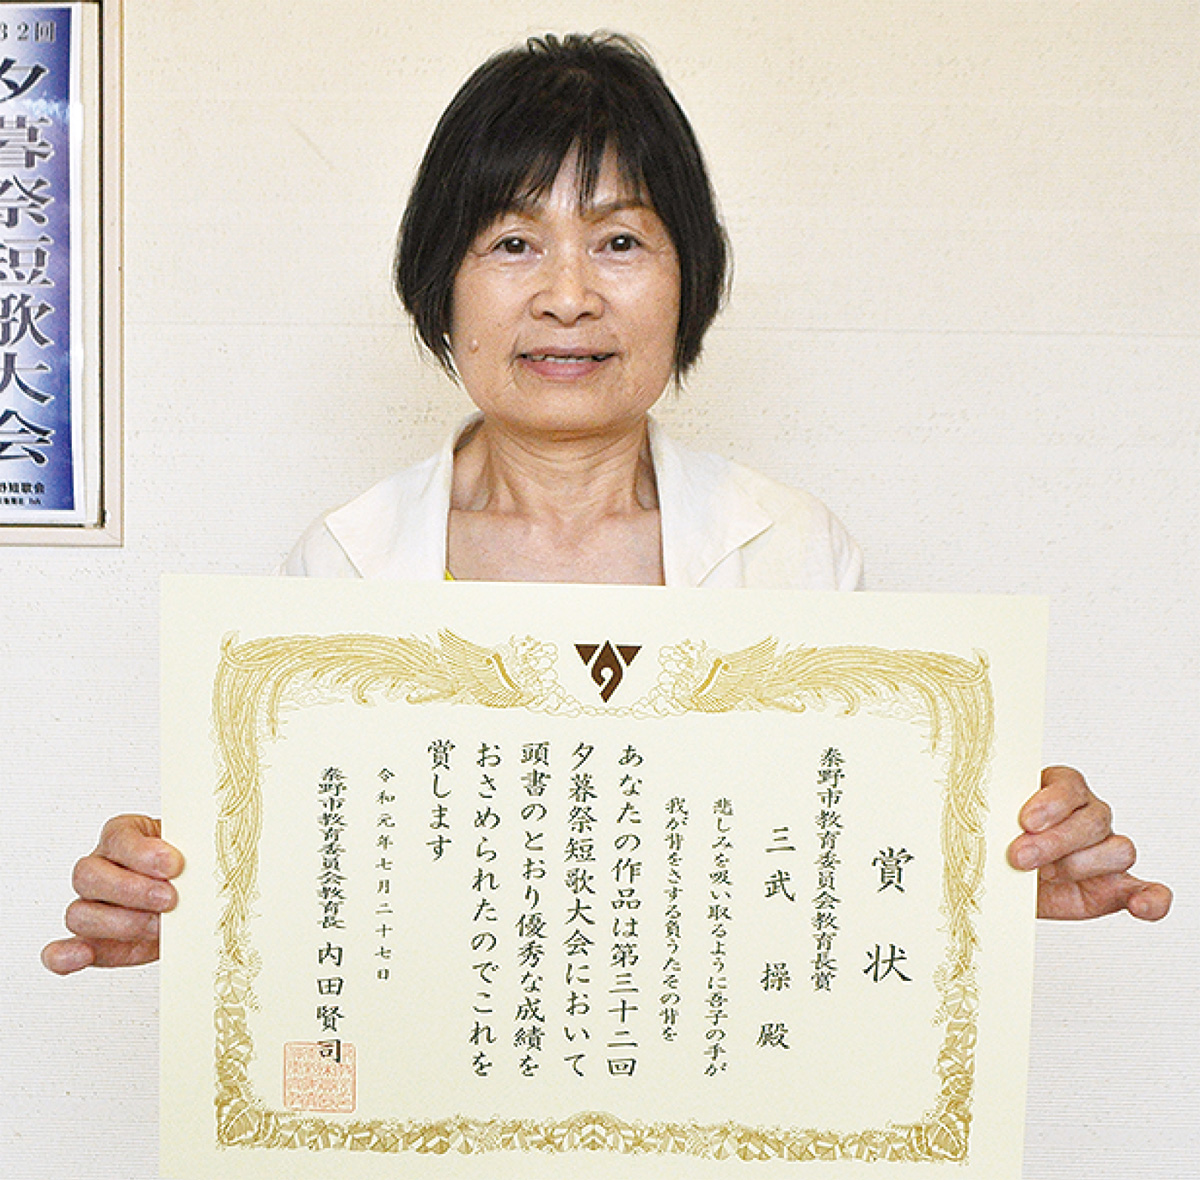 32回
夕暮祭短歌大会
野短歌会
賞状
秦野市教育委員会教育長賞
三武操殿
悲しみを吸い取るように吾子の手が
我が背をさする負うたその背を
あなたの作品は第三十二回
夕暮祭短歌大会において
頭書のとおり優秀な成績を
おさめられたのでこれを
賞します
令和元年七月二十七日
秦野市教育委員会教育長 内田賢司